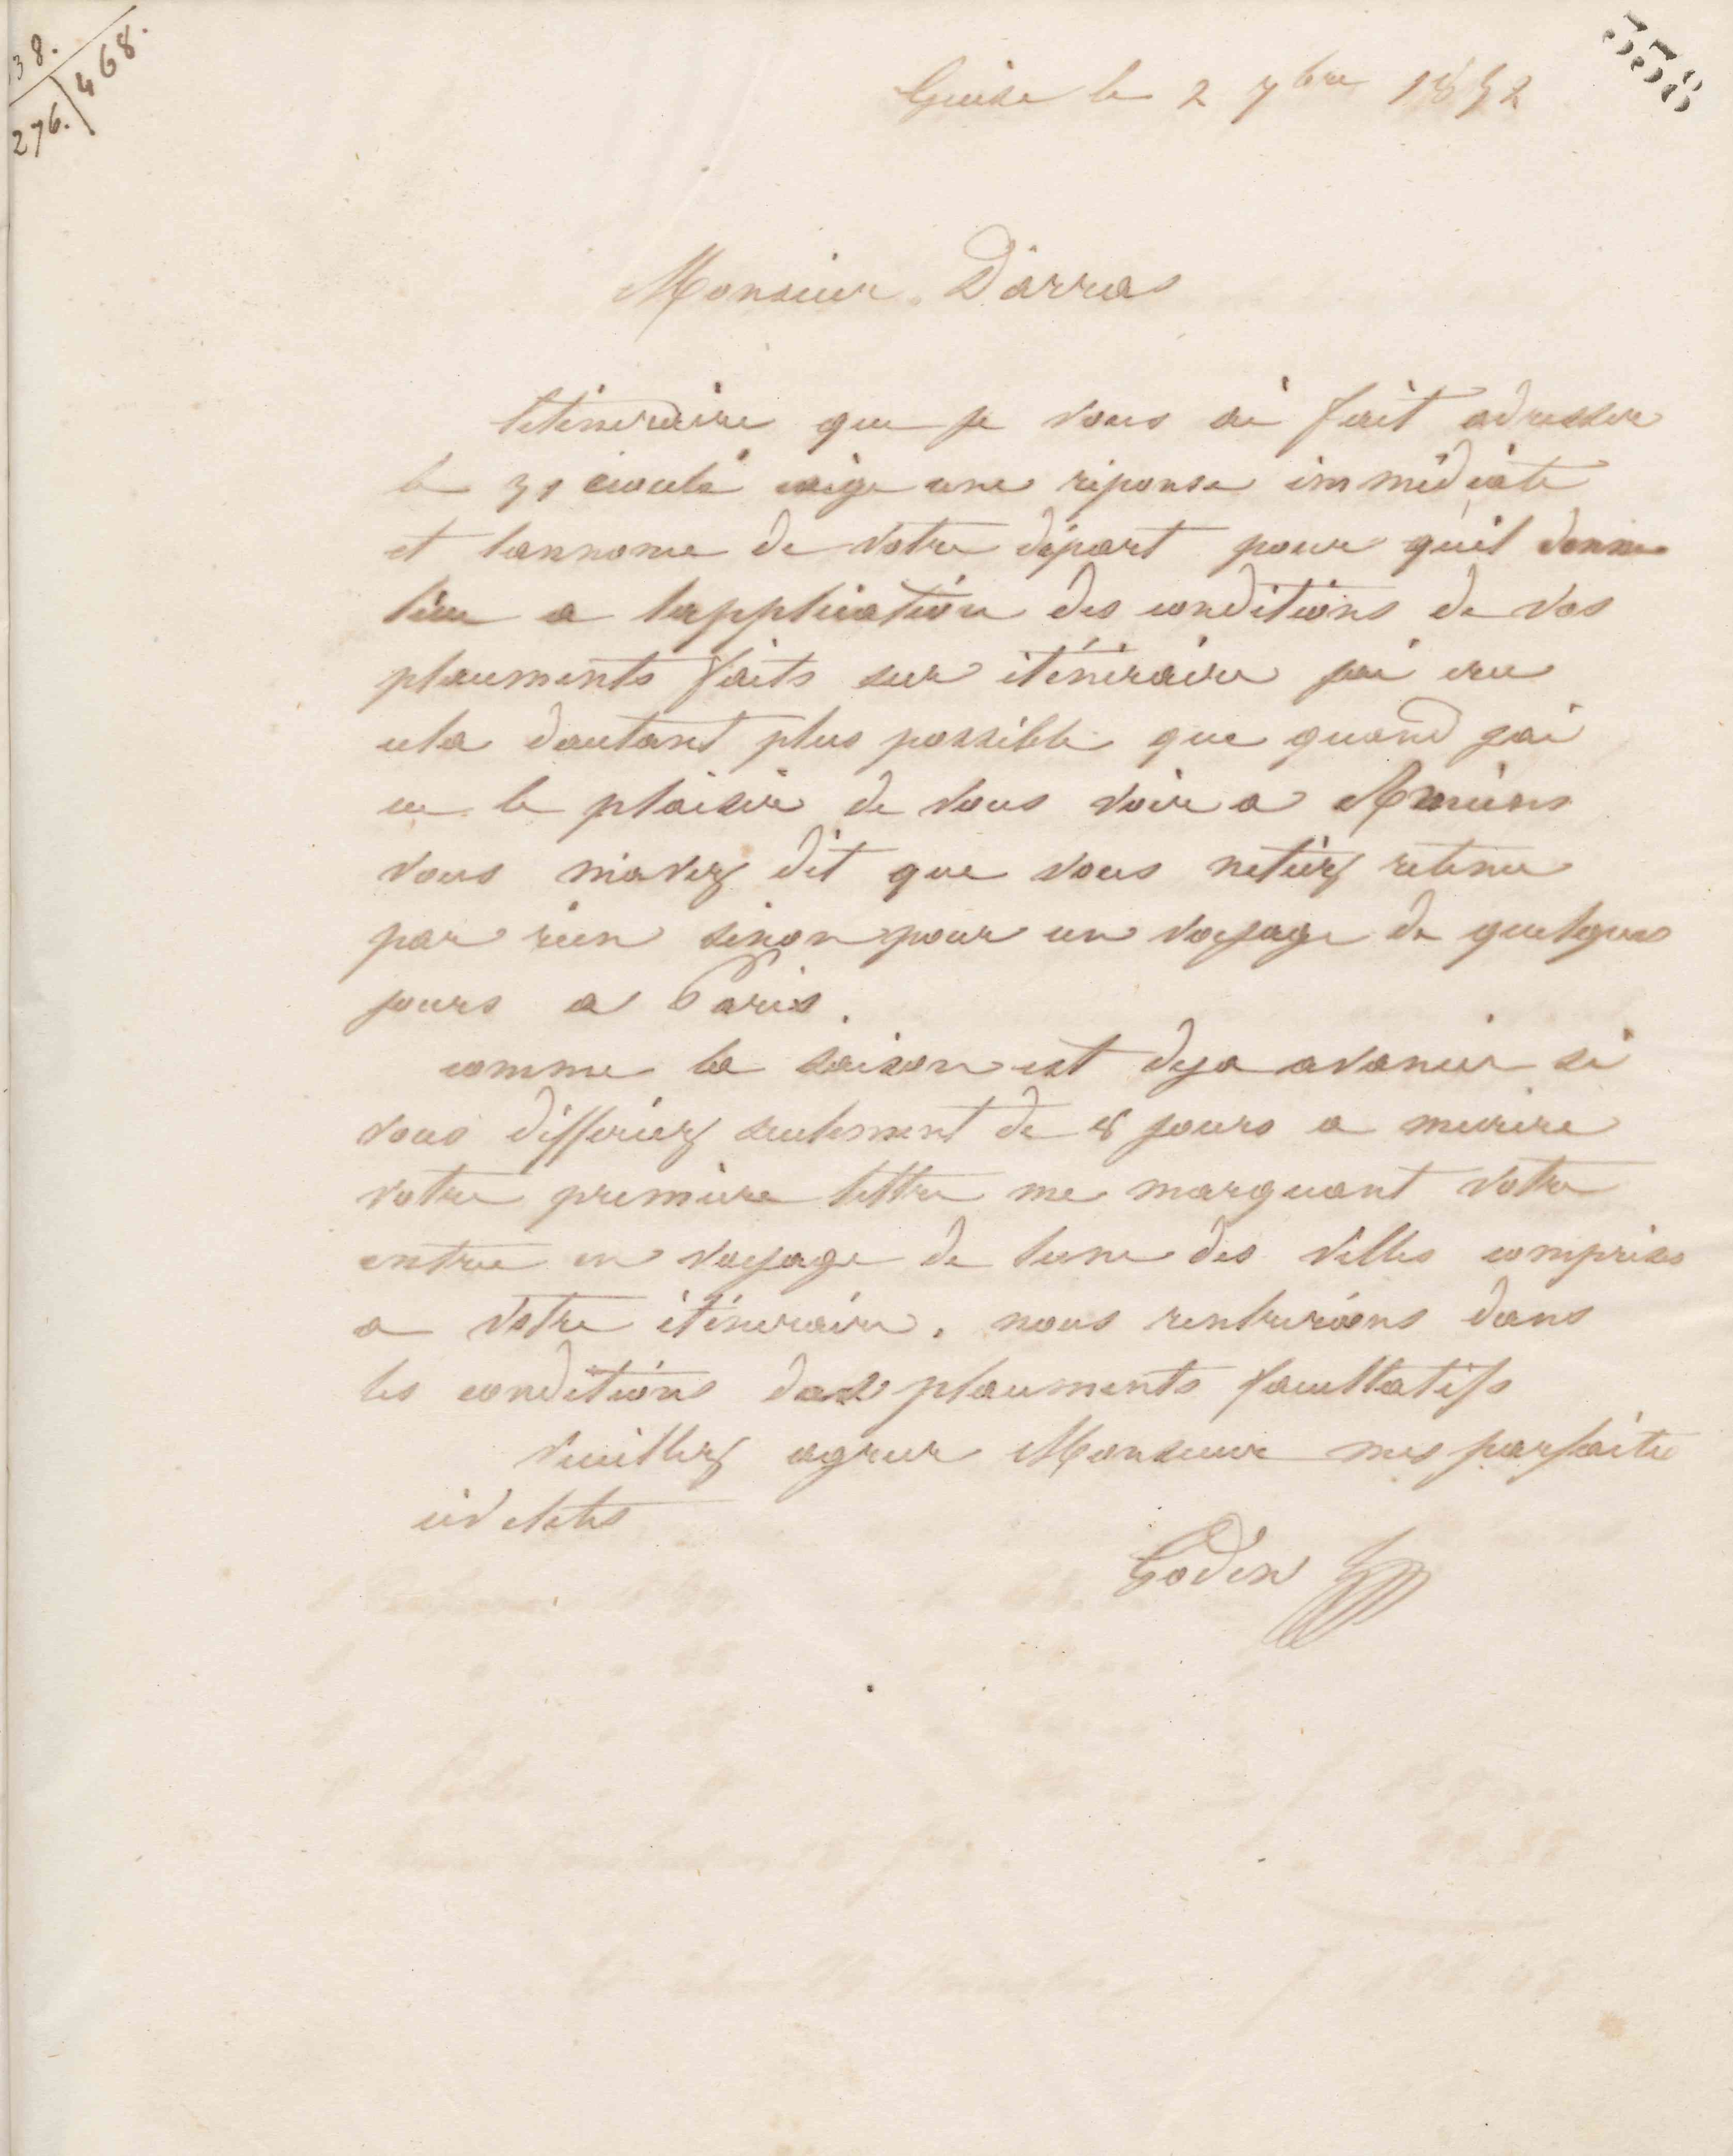 138.
468.
276.
558
Guise le 2 7bre 1852
Monsieur Darras
litineraire que je vous ai fait adresser
le 31 écoulé exige une réponse immédiate
et lannonce de votre départ pour quil donne
lieu a lapplication des conditions de vos
placements faits sur itinéraire jai cru
cela dautant plus possible que quand jai
eu le plaisir de vous voir a Amiens
vous mavez dit que vous netiez retenu
par rien sinon pour un voyage de quelques
jours a Paris.
comme la saison est deja avancee si
vous differiez seulement de 8 jours a mecrire
votre premiere lettre me marquant votre
entree en voyage de lune des villes comprises
a votre itineraire. nous rentrerions dans
les conditions des placements facultatifs
Veuillez agreer Monsieur mes parfaites
civilites
Godin